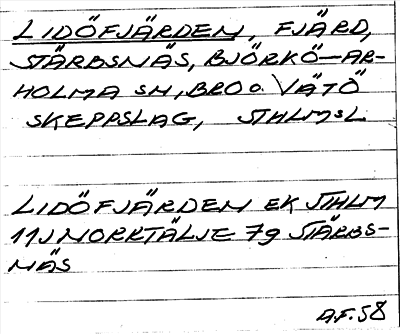 LIDÖFJÄRDEN, FJÄRD,
STÄRBSNÄS, BJÖRKÖ-AR-
HOLMA SN, BRO O. VÄTÖ
SKEPPSLAG, STHLMSL
LIDÖFJÄRDEN EK STHLM
11J NORRTÄLJE 79 STÄRBS-
NÄS
AF.58